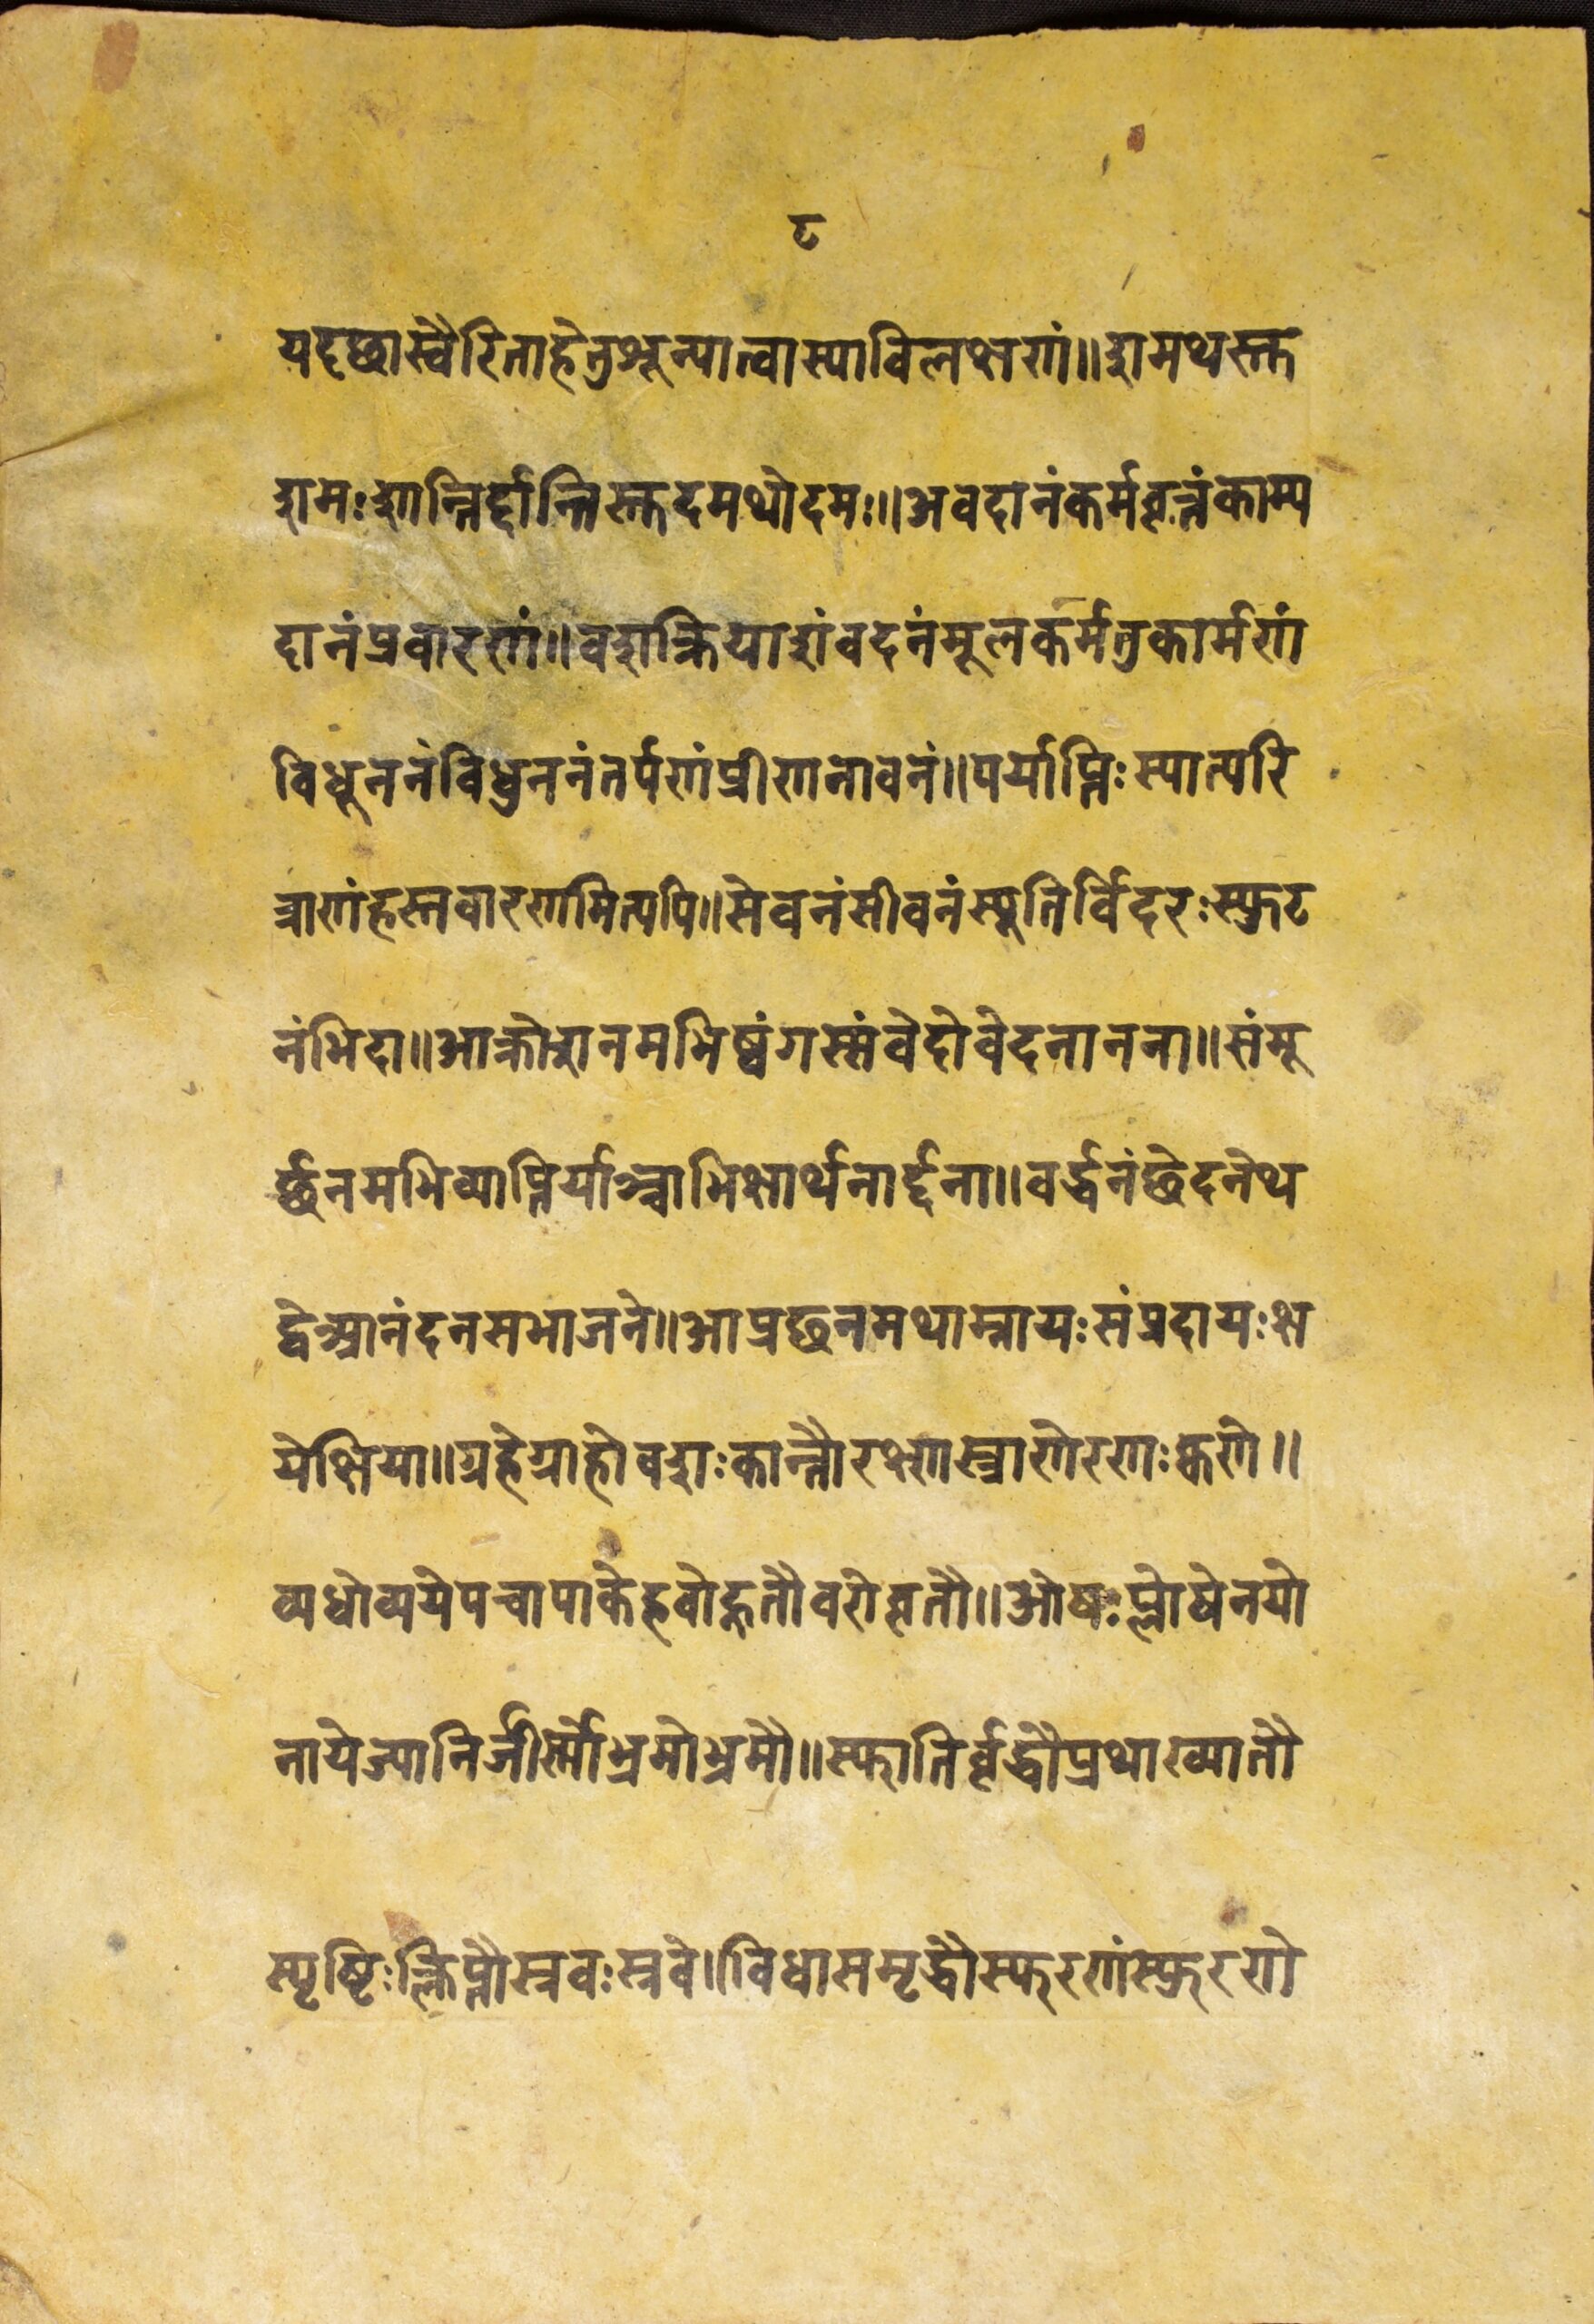 ८
यदृछास्वैरिताहेतुशून्यात्वास्याविलक्षणं॥शमथस्त
शमःशान्तिर्द्दान्तिस्तदमथोदमः॥अवदानंकर्मवृत्तंकाम्य
दानंप्रवारणं॥वशक्रियाशंवदनंमूलकर्मतुकार्मणं
विधूननंविधुननंतर्पणंप्रीणनावनं॥पर्याप्तिःस्यात्परि
त्राणंहस्तवारणमित्यपि॥सेवनंसीवनंस्यूतिर्विदरःस्फुट
नंभिदा॥आक्रोशनमभिष्वंगस्संवेदोवेदनानना॥संमू
र्छनमभिव्याप्तिर्याञ्चाभिक्षार्थनार्द्दना॥वर्द्धनंछेदनेथ
द्वेआनंदनसभाजने॥आप्रछनमथाम्नायःसंप्रदायःक्ष
येक्षिया॥ग्रहेग्राहोवशःकान्तौरक्ष्णस्त्राणेरणःक्वणे॥
व्यधोव्यधेपचापाकेहवोहूतौवरोवृतौ॥ओषःप्लोषेनयो
नायेज्यानिर्जीर्त्सोभ्रमोभ्रमौ॥स्फातिर्वृद्धौप्रथाख्यातौ
स्पृष्टिःक्लिप्तौस्नवःस्नवे।विधासमृद्धौस्फुरणंस्फुरणे